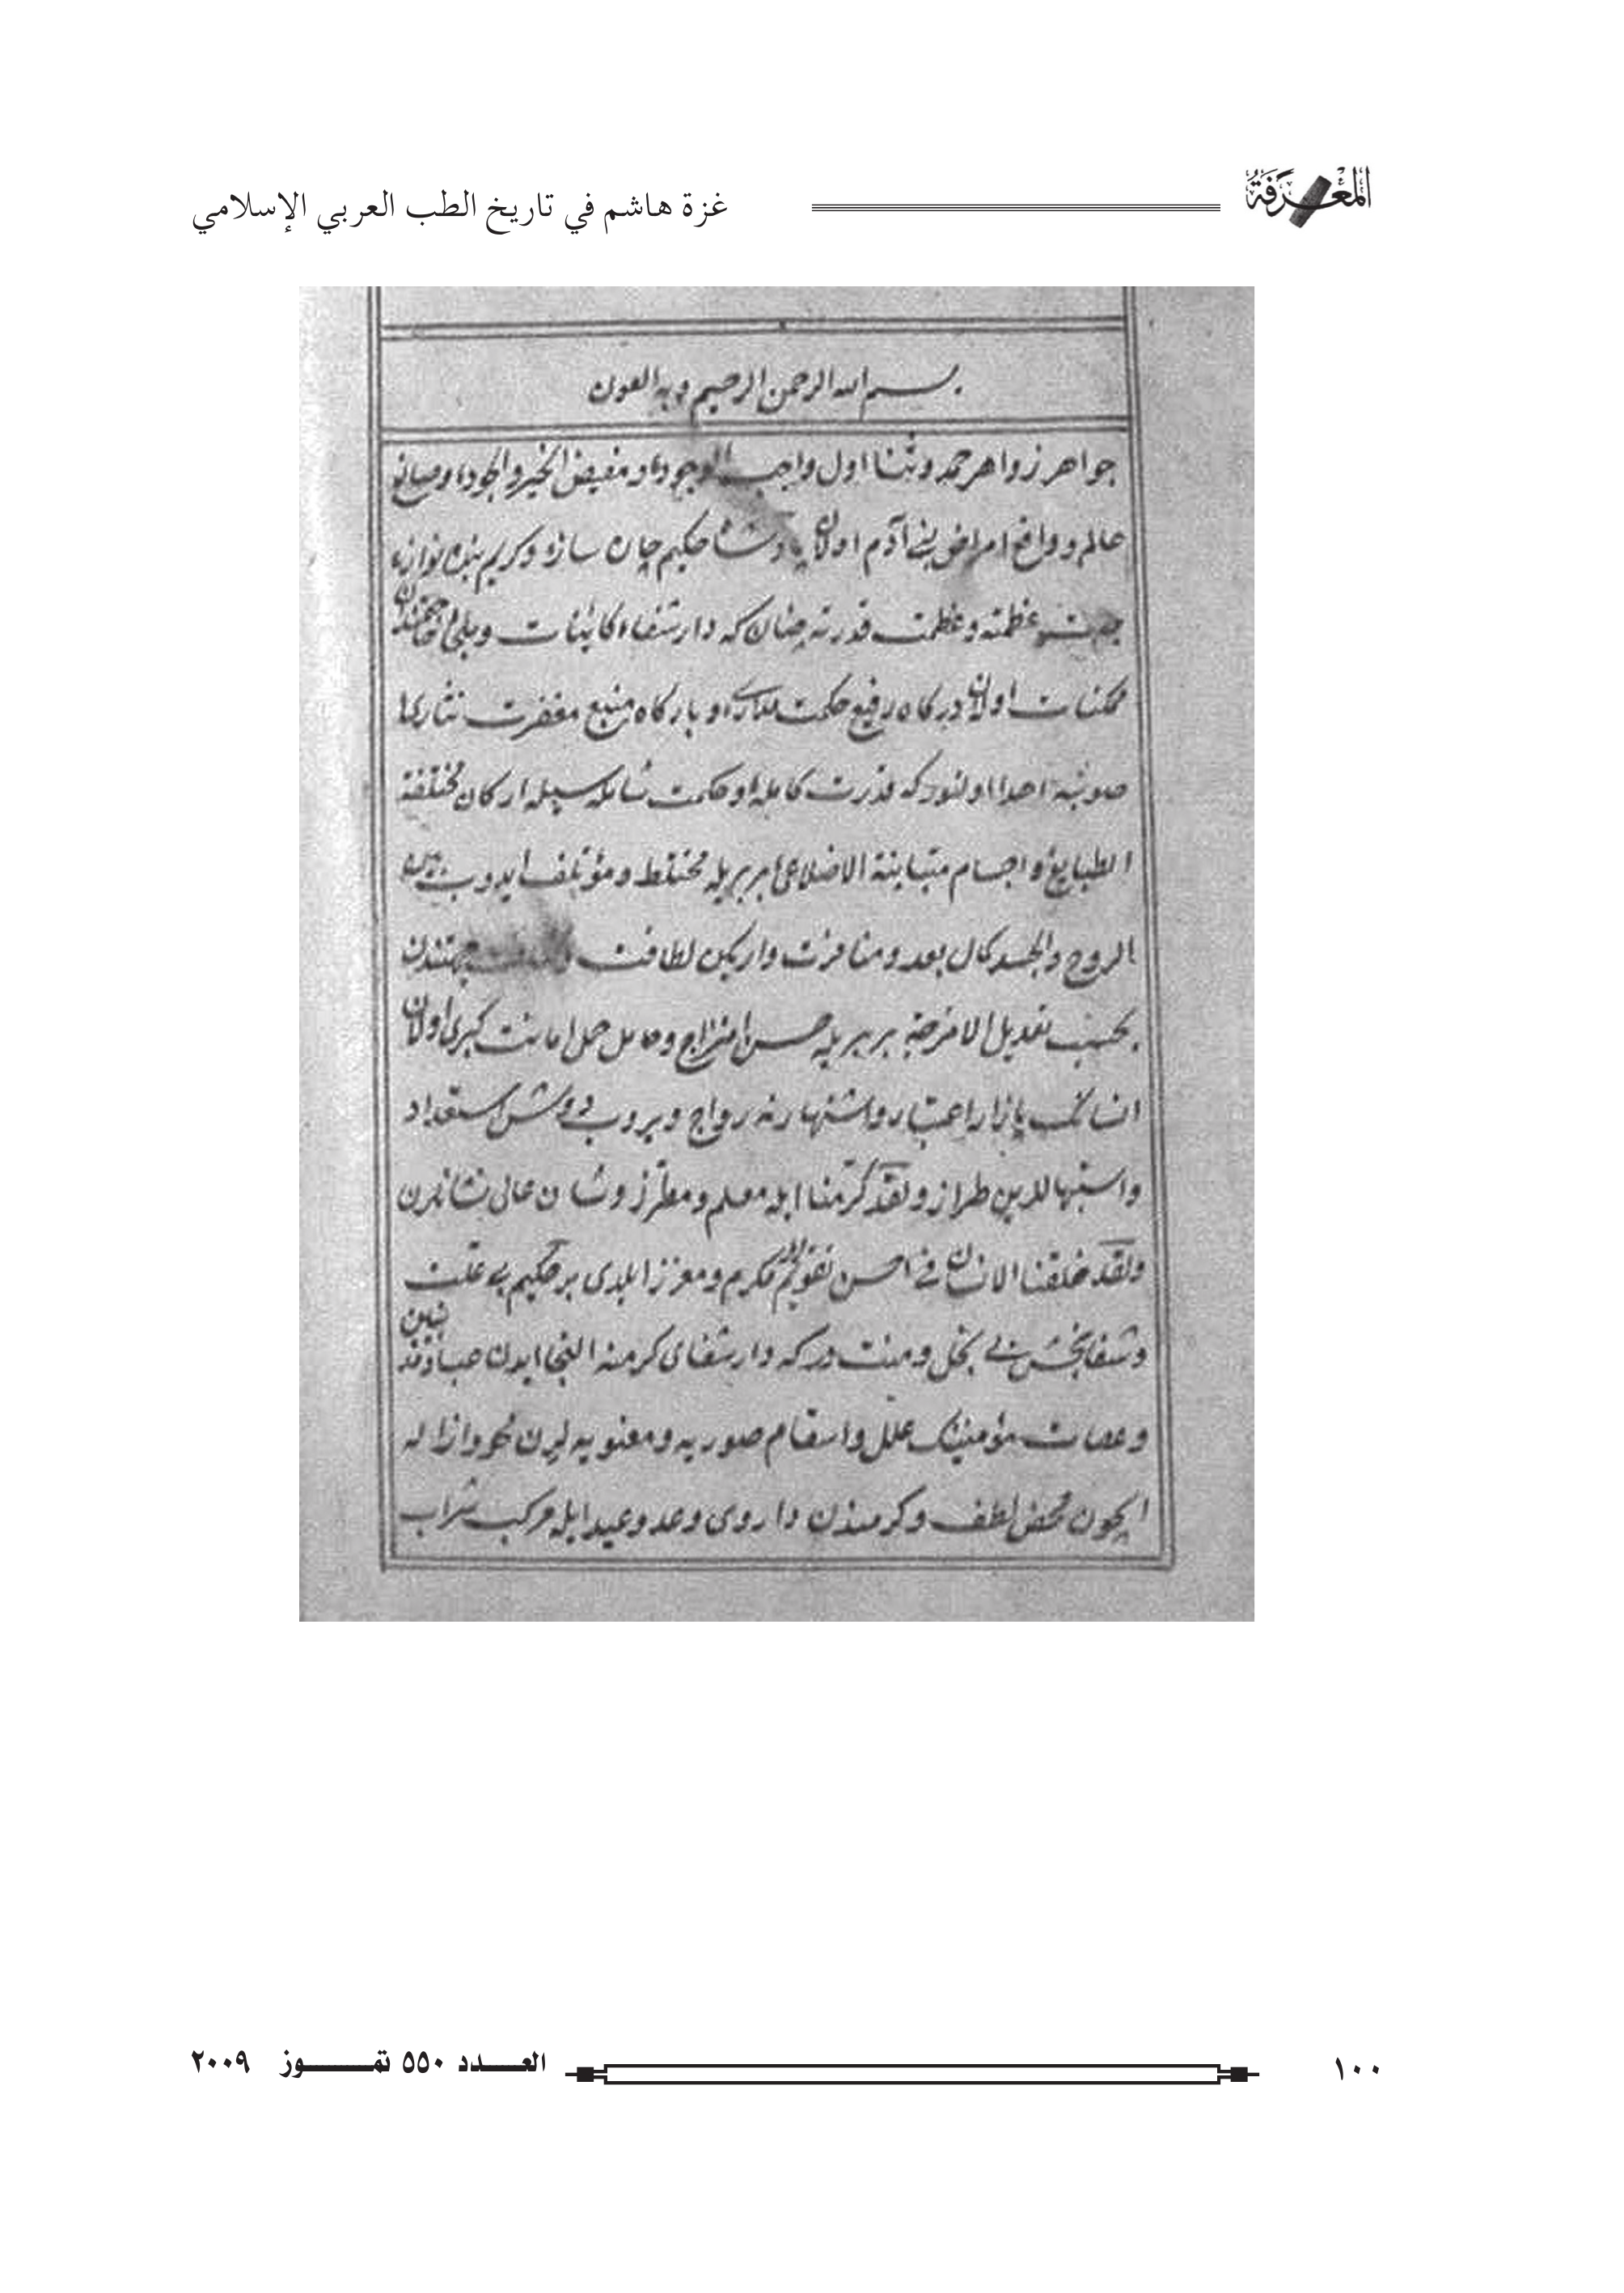 المعرفة
غزة هاشم في تاريخ الطب العربي الإسلامي
بسم الله الرحمن الرحيم وبه العون
جواهر زواهر حمد وثنا اول واجب الوجود و مفيض الخير والجود وصانع
عالم و امراض بني آدم اولان حكيم جان ساز و كريم بنده نواز
عظمته وعظمت قدرته كه دار شفاء كائنات
ممكنات اولان دركاه رفيع حكمت و باركاه منيع مغفرت
صوبنه اهدا اولنور كه قدرت كامله و حكمت شامله سيله اركان مختلفة
الطبايع و اجسام متباينة الاضلاعى بربريله مختلط و مؤتلف ايدوب
الروح والجسد كمال بعد و منافرت وار يكن لطافت جهتندن
بحسب تعديل الامزجه بربريله حسن امتزاج و حامل حمل امانت كبرى اولان
انسانك بازار اعتبار و اشتهارنه رواج ويروب دوش استعداد
و طراز ولقد كرمنا ايله معلم و مطرز و شان عالى نشانلرن
ولقد خلقنا الانسان في احسن تقويم مكرم و معزز ايلدى بر حكيم بى علت
و شفابخش بى بخل و منت در كه دار شفاى كرمنه التجا ايدن عباد
و عصات مؤمنينك علل و اسقام صوريه و معنويه لرن محو و ازاله
ايچون محض لطف و كرمندن داروى وعد و وعيد ايله مركب شراب
١٠٠
العدد ٥٥٠ تموز ٢٠٠٩